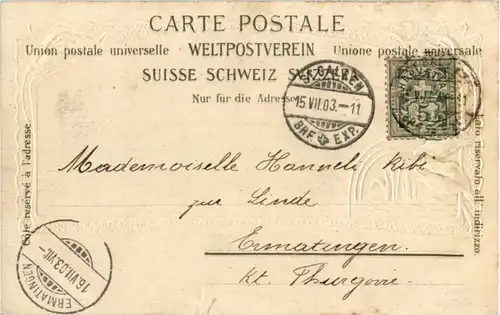 CARTE POSTALE
Union postale universelle WELTPOSTVEREIN Unione postale universale
SUISSE SCHWEIZ SVIZZERA
Nur für die Adresse
Côté réservé à l'adresse.
lato riservato all'indirizzo.
ST. GALLEN
15.VII.03.-11
BRF. EXP.
Mademoiselle Hanneli Ribi
zur Linde
Ermatingen.
Kt. Thurgovie.
16.VII.03.VII.-
ERMATINGEN